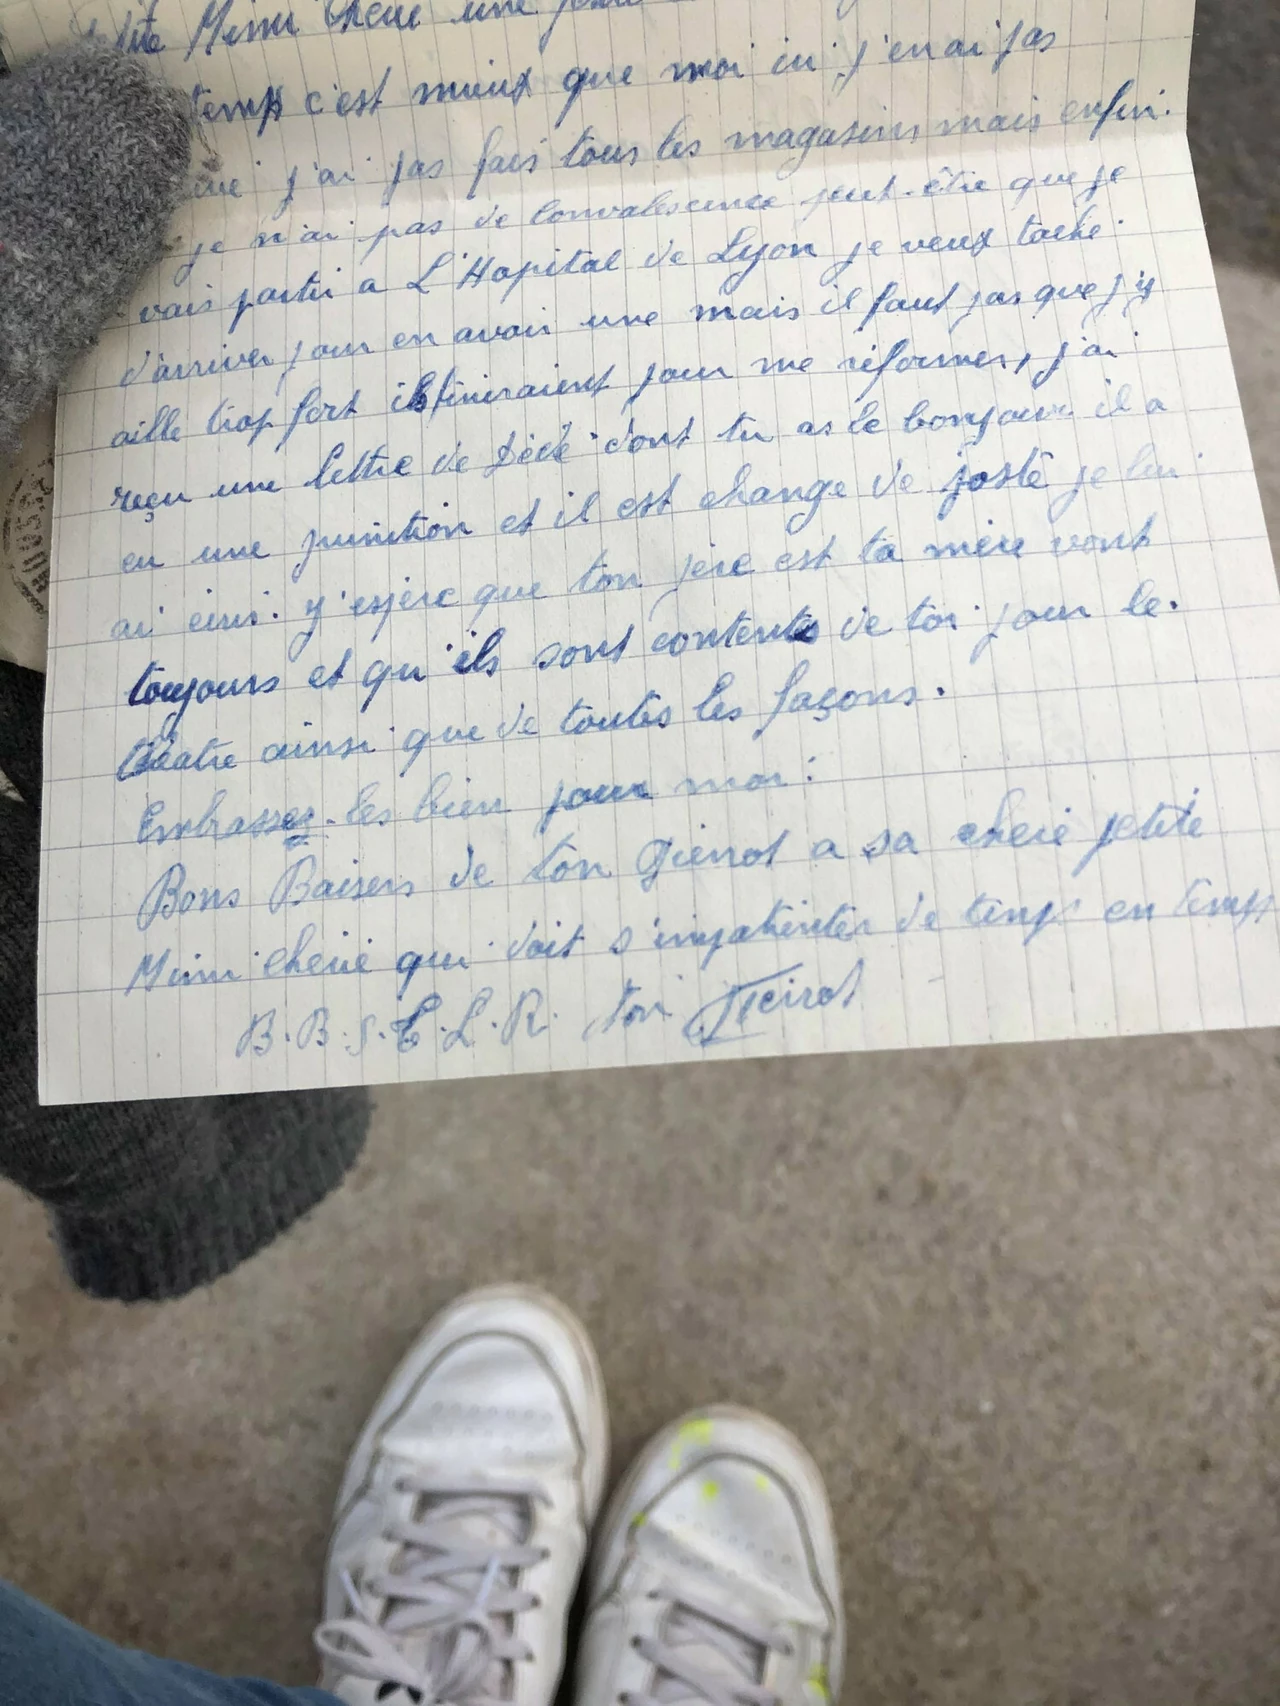 Mimi chérie une
temps c'est mieux que moi ici j'en ai pas
j'ai pas fais tous les magasins mais enfin.
je n'ai pas de convalescence peut-être que je
vais partir a L'Hopital de Lyon je veux taché
d'arriver pour en avoir une mais il faut pas que j'y
aille trop fort ils finiraient pour me réformer, j'ai
reçu une lettre de Dédé dont tu as le bonjour il a
eu une punition et il est change de poste je lui
ai écris. J'espère que ton père est ta mère vont
toujours et qu'ils sont contents de toi pour le.
téatre ainsi que de toutes les façons.
Embrasses-les bien pour moi:
Bons Baisers de ton Pierrot a sa cherie petite
Mimi chérie qui doit s'impatienter de temps en temps
B.B.S.T.L.R. ton Pierrot